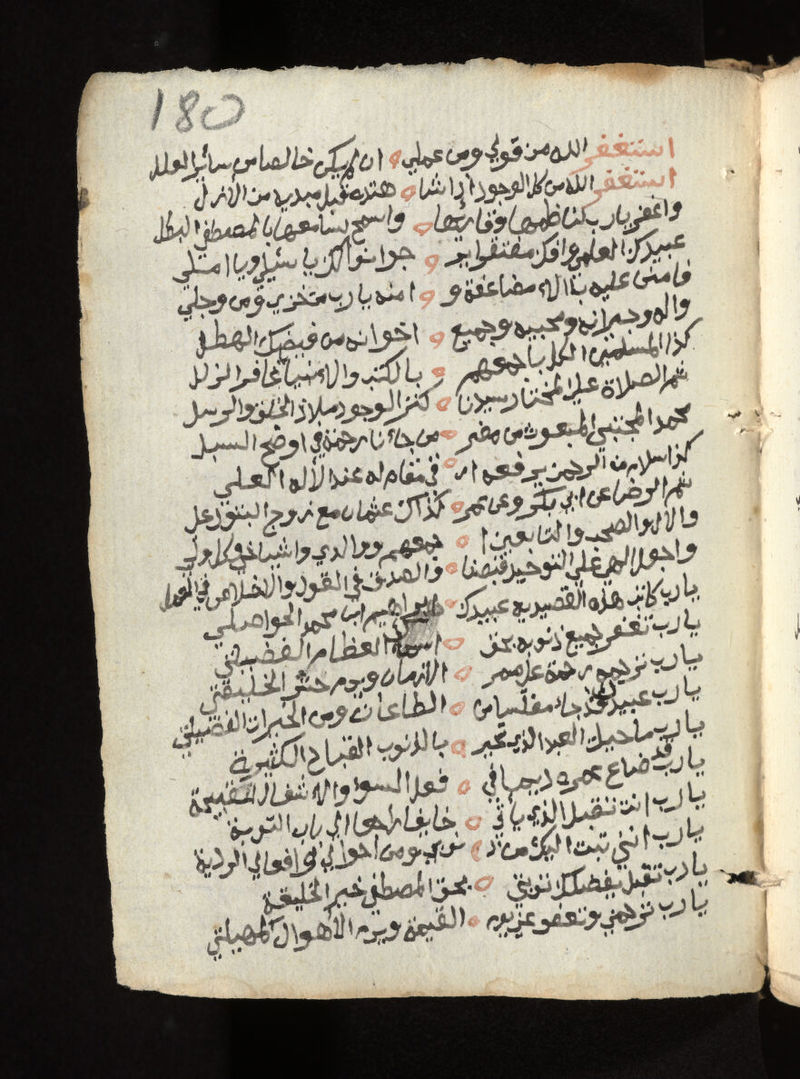 180
استغفر الله من قولي ومن عملي ان لم يكن خالصا من سائر العلل
استغفر الله من كل الوجود اذا شا هتده قبل مبديه من الازل
واغفر يارب لناظمها وقارئها واسمح لسامعها بالمصطفى البطل
عبيدك العلمي وافك مفتقرا جوا نوالك يا سيلي ويا املي
فامنن عليه بنا الاه مضاعفة و امنه يارب من خزي ومن وجلي
واله وجيرانه ومحبيه وجميع اخوانه من فيضك الهطل
كذا المسلمين الكل باجمعهم بالكتب والانبيا غافر الزلل
ثم الصلاة على المختار سيدنا كنز الوجود ملاذ الخلق والرسل
محمد المجتبى المبعوث من مضر من جاءنا رحمة في اوضح السبل
كذا سلام من الرحمن يرفعه الى في مقام له عند الاله العلي
ثم الرضا عن ابي بكر وعن عمر كذاك عثمان مع زوج البتول عل
والال والصحب والتابعين ا جمعهم ووالدي واشياخي وكل ولي
واجعل الهي على التوحيد قبضنا والصدق في القول والاخلاص في العمل
يارب كاتب هذه القصيديه عبيدك ابراهيم ابن محمد الحواصلي
يارب تغفر لجميع ذنوبه بحق اسمك العظام الفضيلتي
يارب ترحيمه رحمة على ممر الازمان ويوم حشر الخليقتي
يارب عبيدك قد جاء مفلسا من الطاعات ومن الخيرات الفضيلتي
يارب ما حيلت العبد الذي تحير بالذنوب القباح الكثيرة
يارب قد ضاع عمره ديجيا في فعل السوا والاشغال القبيحة
يارب انت تقبل الذي يأتي خايفا راجعا الى باب التوبة
يارب انني تبت اليك من ذ نوبي ومن احوالي وافعالي الردية
يارب تقبل بفضلك توبتي بحق المصطفى خير الخليقة
يارب ترحمني وتعفو عن يوم القيمة ويوم الأهوال المهيلتي